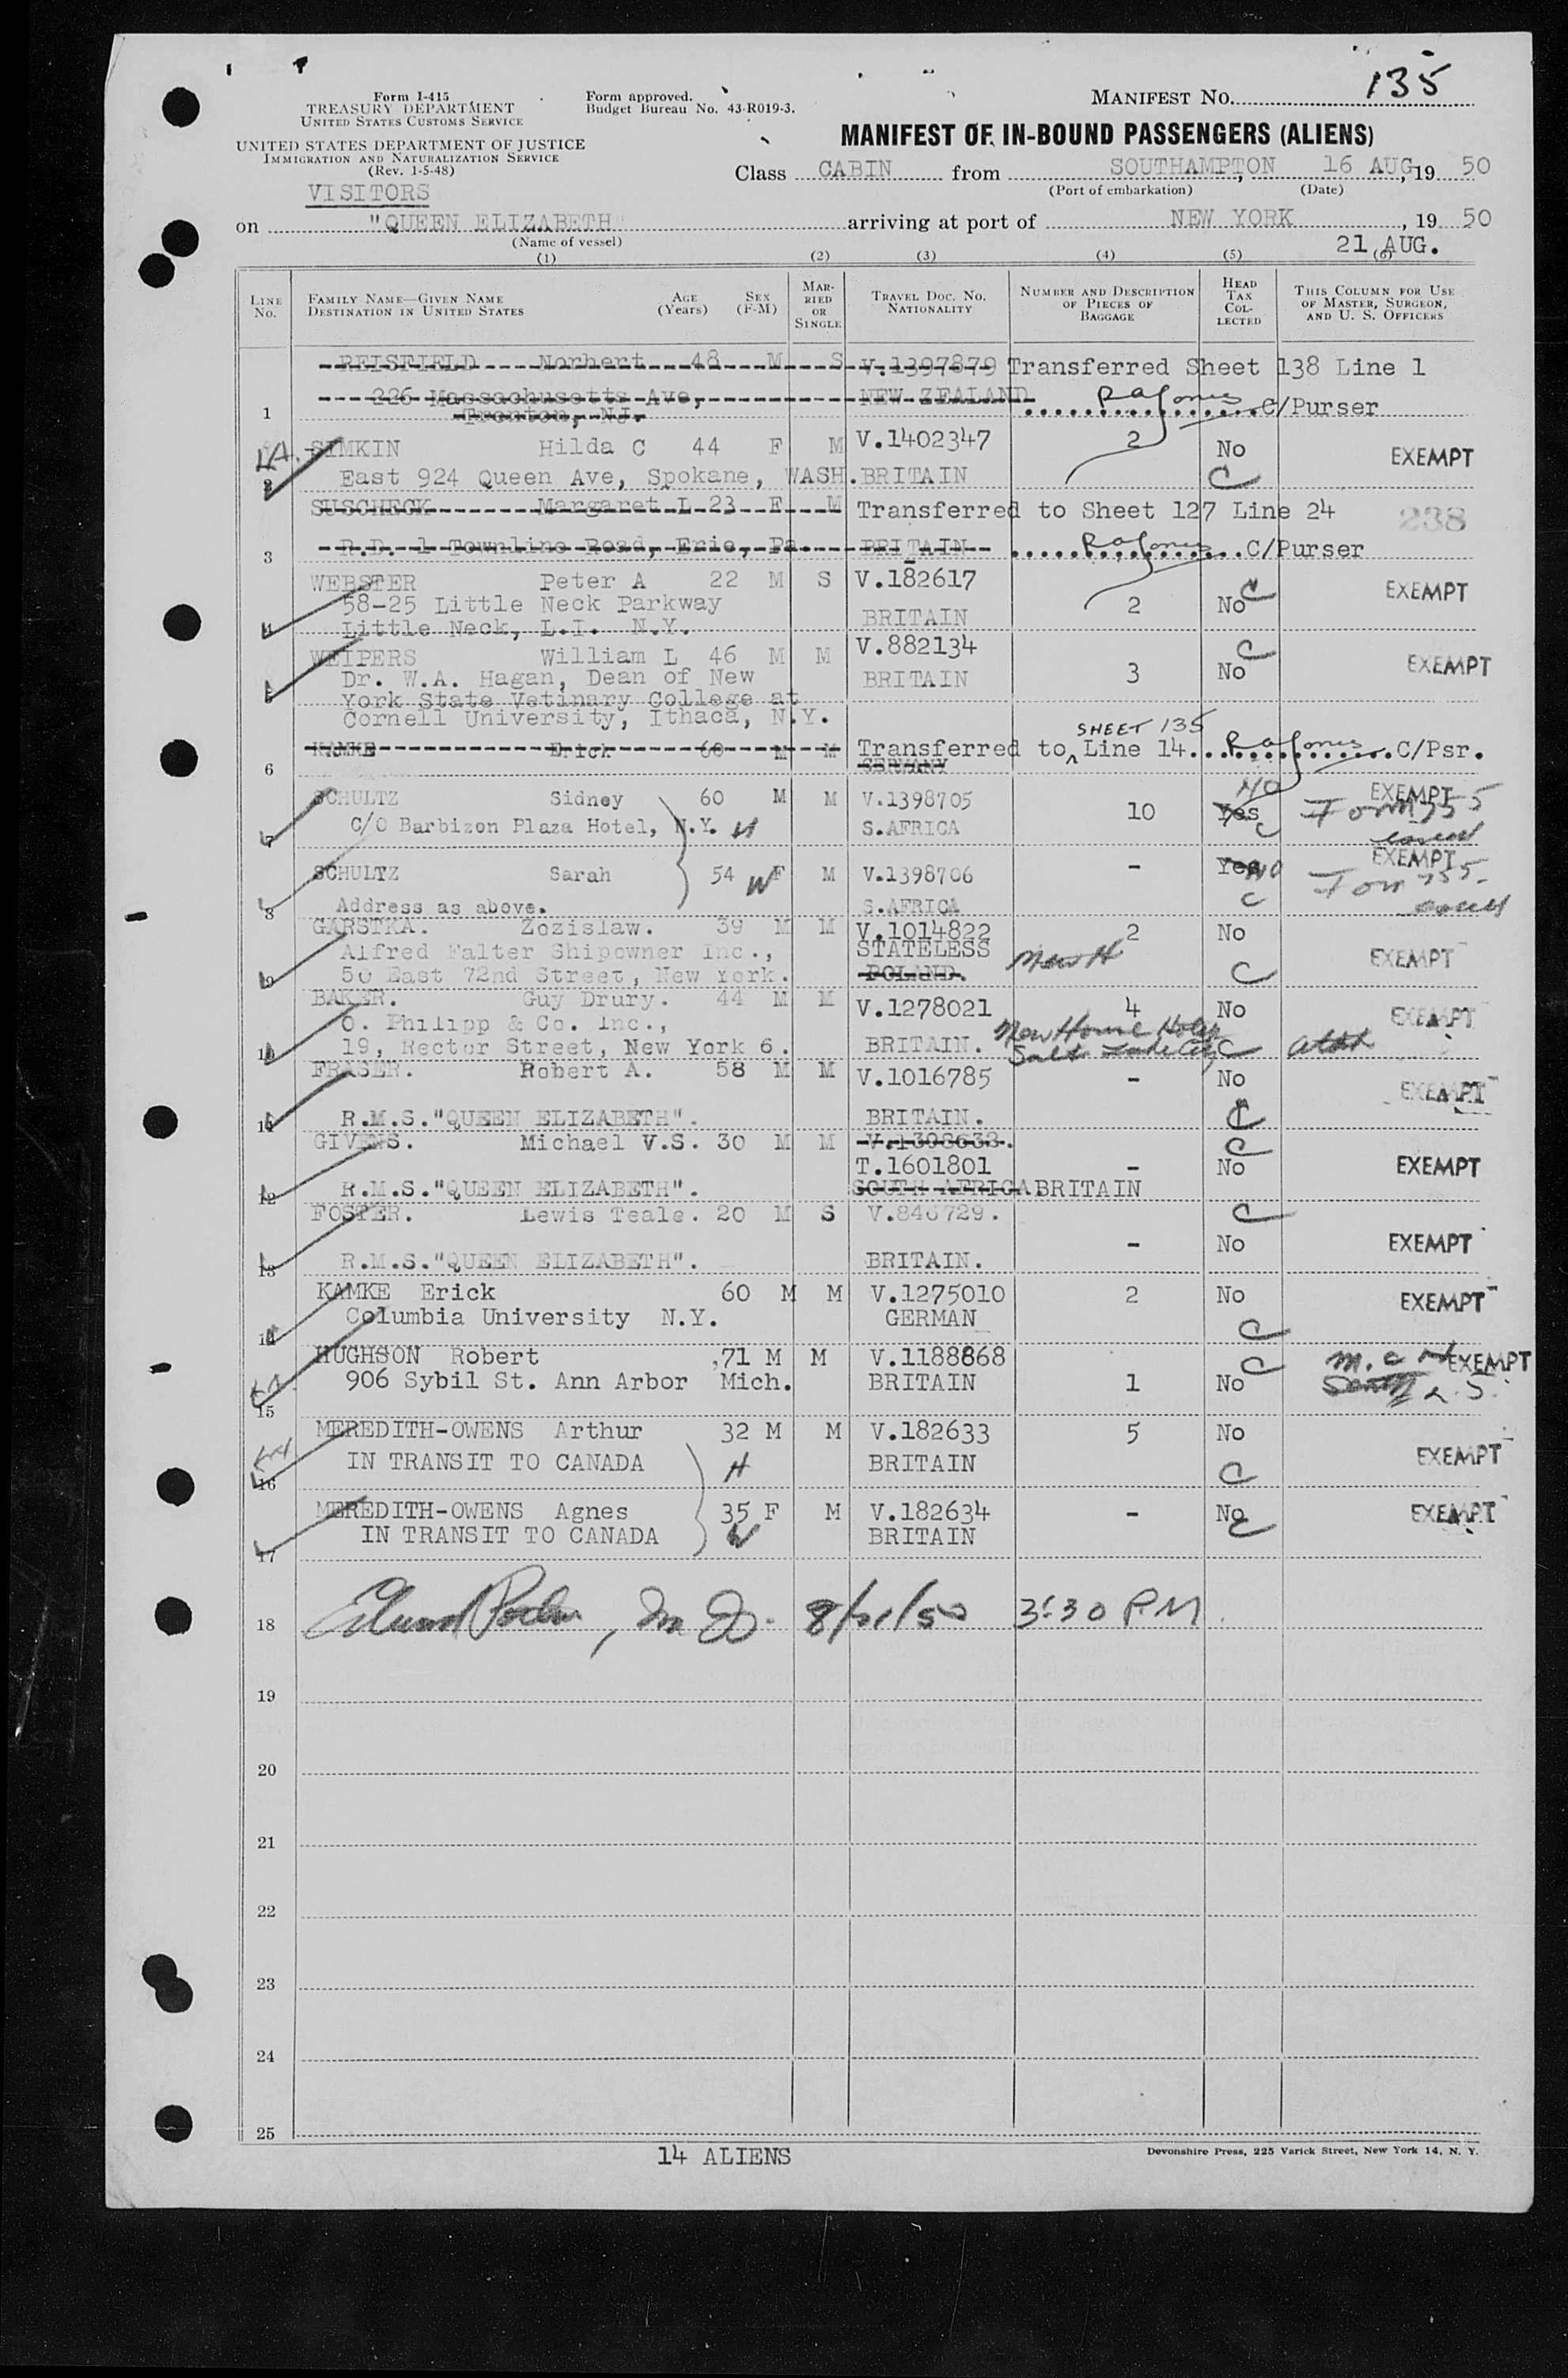 135
Form I-415
TREASURY DEPARTMENT
UNITED STATES CUSTOMS SERVICE
Form approved.
Budget Bureau No. 43-R019-3.
MANIFEST NO.
UNITED STATES DEPARTMENT OF JUSTICE
IMMIGRATION AND NATURALIZATION SERVICE
(Rev. 1-5-48)
MANIFEST OF IN-BOUND PASSENGERS (ALIENS)
VISITORS
Class CABIN from SOUTHAMPTON, 16 AUG, 19 50
(Port of embarkation) (Date)
on "QUEEN ELIZABETH" arriving at port of NEW YORK, 19 50
(Name of vessel) 21 AUG.
(1) (2) (3) (4) (5) (6)
LINE No. FAMILY NAME—GIVEN NAME DESTINATION IN UNITED STATES AGE (Years) SEX (F-M) MARRIED OR SINGLE TRAVEL DOC. NO. NATIONALITY NUMBER AND DESCRIPTION OF PIECES OF BAGGAGE HEAD TAX COLLECTED THIS COLUMN FOR USE OF MASTER, SURGEON, AND U. S. OFFICERS
REISFIELD Norbert 48 M S V.1397879 Transferred Sheet 138 Line 1
226 Massachusetts Ave, NEW ZEALAND
1 Trenton, NJ. RaJones C/Purser
SIMKIN Hilda C 44 F M V.1402347 2 No EXEMPT
2 East 924 Queen Ave, Spokane, WASH. BRITAIN C
SUSCHECK Margaret L 23 F M Transferred to Sheet 127 Line 24 238
3 R.D. 1 Townline Road, Erie, Pa. BRITAIN RaJones C/Purser
WEBSTER Peter A 22 M S V.182617 C EXEMPT
58-25 Little Neck Parkway 2 No
4 Little Neck, L.I. N.Y. BRITAIN
WEIPERS William L 46 M M V.882134 C EXEMPT
Dr. W.A. Hagan, Dean of New BRITAIN 3 No
5 York State Vetinary College at
Cornell University, Ithaca, N.Y.
SHEET 135
6 KAMKE Erick 60 M M Transferred to Line 14. RaJones C/Psr.
GERMANY
SCHULTZ Sidney 60 M M V.1398705 10 Yes NO EXEMPT
7 C/O Barbizon Plaza Hotel, N.Y. H S.AFRICA C Form 755
SCHULTZ Sarah 54 W F M V.1398706 - Yes NO EXEMPT
8 Address as above. S.AFRICA C Form 755
GARSTKA. Zozislaw. 39 M M V.1014822 2 No
Alfred Falter Shipowner Inc., STATELESS EXEMPT
9 50 East 72nd Street, New York. POLAND. C
BAKER. Guy Drury. 44 M M V.1278021 4 No EXEMPT
O. Philipp & Co. Inc., New House Hotel
10 19, Rector Street, New York 6. BRITAIN. Salt Lake City C
FRASER. Robert A. 58 M M V.1016785 - No EXEMPT
11 R.M.S."QUEEN ELIZABETH". BRITAIN. C
GIVENS. Michael V.S. 30 M M V.1398638. C
T.1601801 - No EXEMPT
12 R.M.S."QUEEN ELIZABETH". SOUTH AFRICA BRITAIN
FOSTER. Lewis Teale. 20 M S V.846729. C
- No EXEMPT
13 R.M.S."QUEEN ELIZABETH". BRITAIN.
KAMKE Erick 60 M M V.1275010 2 No EXEMPT
14 Columbia University N.Y. GERMAN C
HUGHSON Robert 71 M M V.1188868 C EXEMPT
15 906 Sybil St. Ann Arbor Mich. BRITAIN 1 No
MEREDITH-OWENS Arthur 32 M M V.182633 5 No
16 IN TRANSIT TO CANADA H BRITAIN C EXEMPT
MEREDITH-OWENS Agnes 35 F M V.182634 - No EXEMPT
17 IN TRANSIT TO CANADA W BRITAIN C
18 8/21/50 3:30 P.M.
19
20
21
22
23
24
25
14 ALIENS
Devonshire Press, 225 Varick Street, New York 14, N. Y.